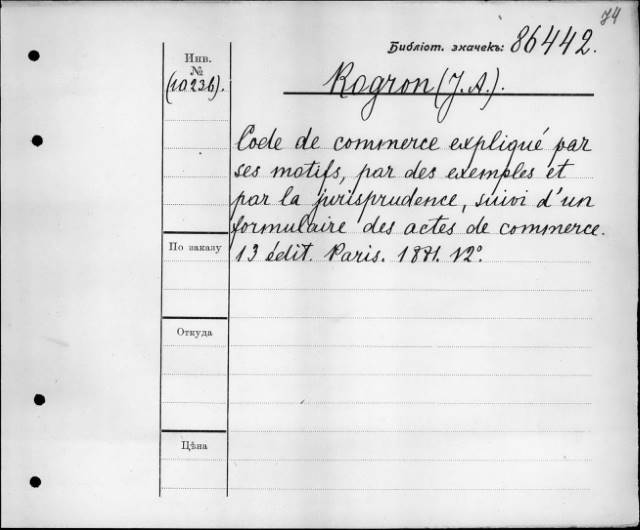 74
Библіот. значекъ: 86442.
Инв.
№
(10236).
Rogron (J. A.).
Code de commerce expliqué par
ses motifs, par des exemples et
par la jurisprudence, suivi d'un
formulaire des actes de commerce.
13 édit. Paris. 1871. 12°.
По заказу
Откуда
Цѣна